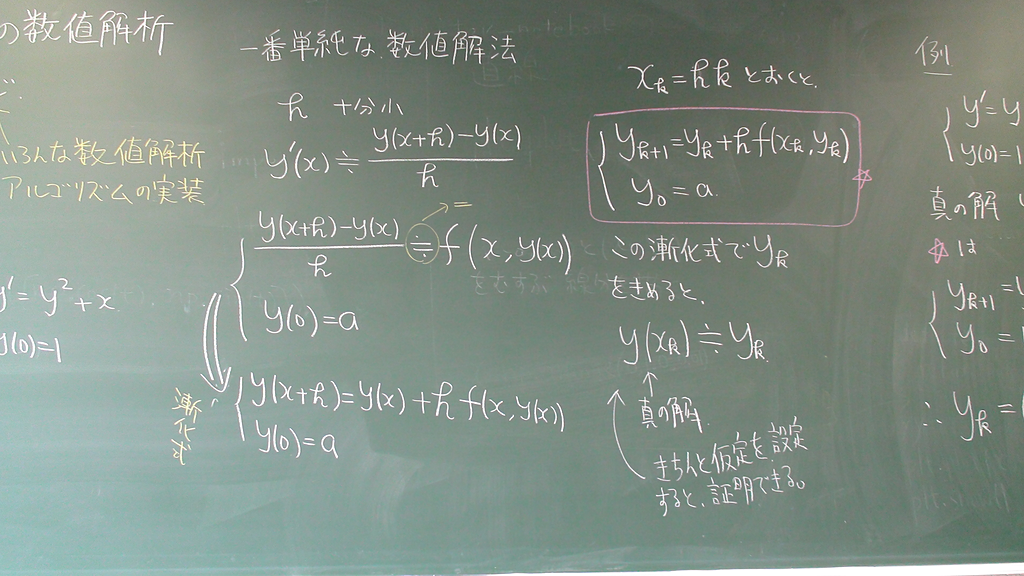 の数値解析
ど.
いろんな数値解析
アルゴリズムの実装
y'=y²+x
y(0)=1
一番単純な数値解法
h 十分小
y'(x)≒(y(x+h)-y(x))/h
{ (y(x+h)-y(x))/h ≒ f(x, y(x))
→ =
y(0)=a
漸化式
{ y(x+h)=y(x)+h f(x, y(x))
y(0)=a
x_k=hk とおくと.
{ y_{k+1}=y_k+h f(x_k, y_k)
y_0=a
☆
この漸化式で y_k
をきめると、
y(x_k)≒y_k
↑
真の解
きちんと仮定を設定
すると、証明できる。
例
{ y'=y
y(0)=1
真の解 y
☆は
{ y_{k+1}=y
y_0=
∴ y_k=